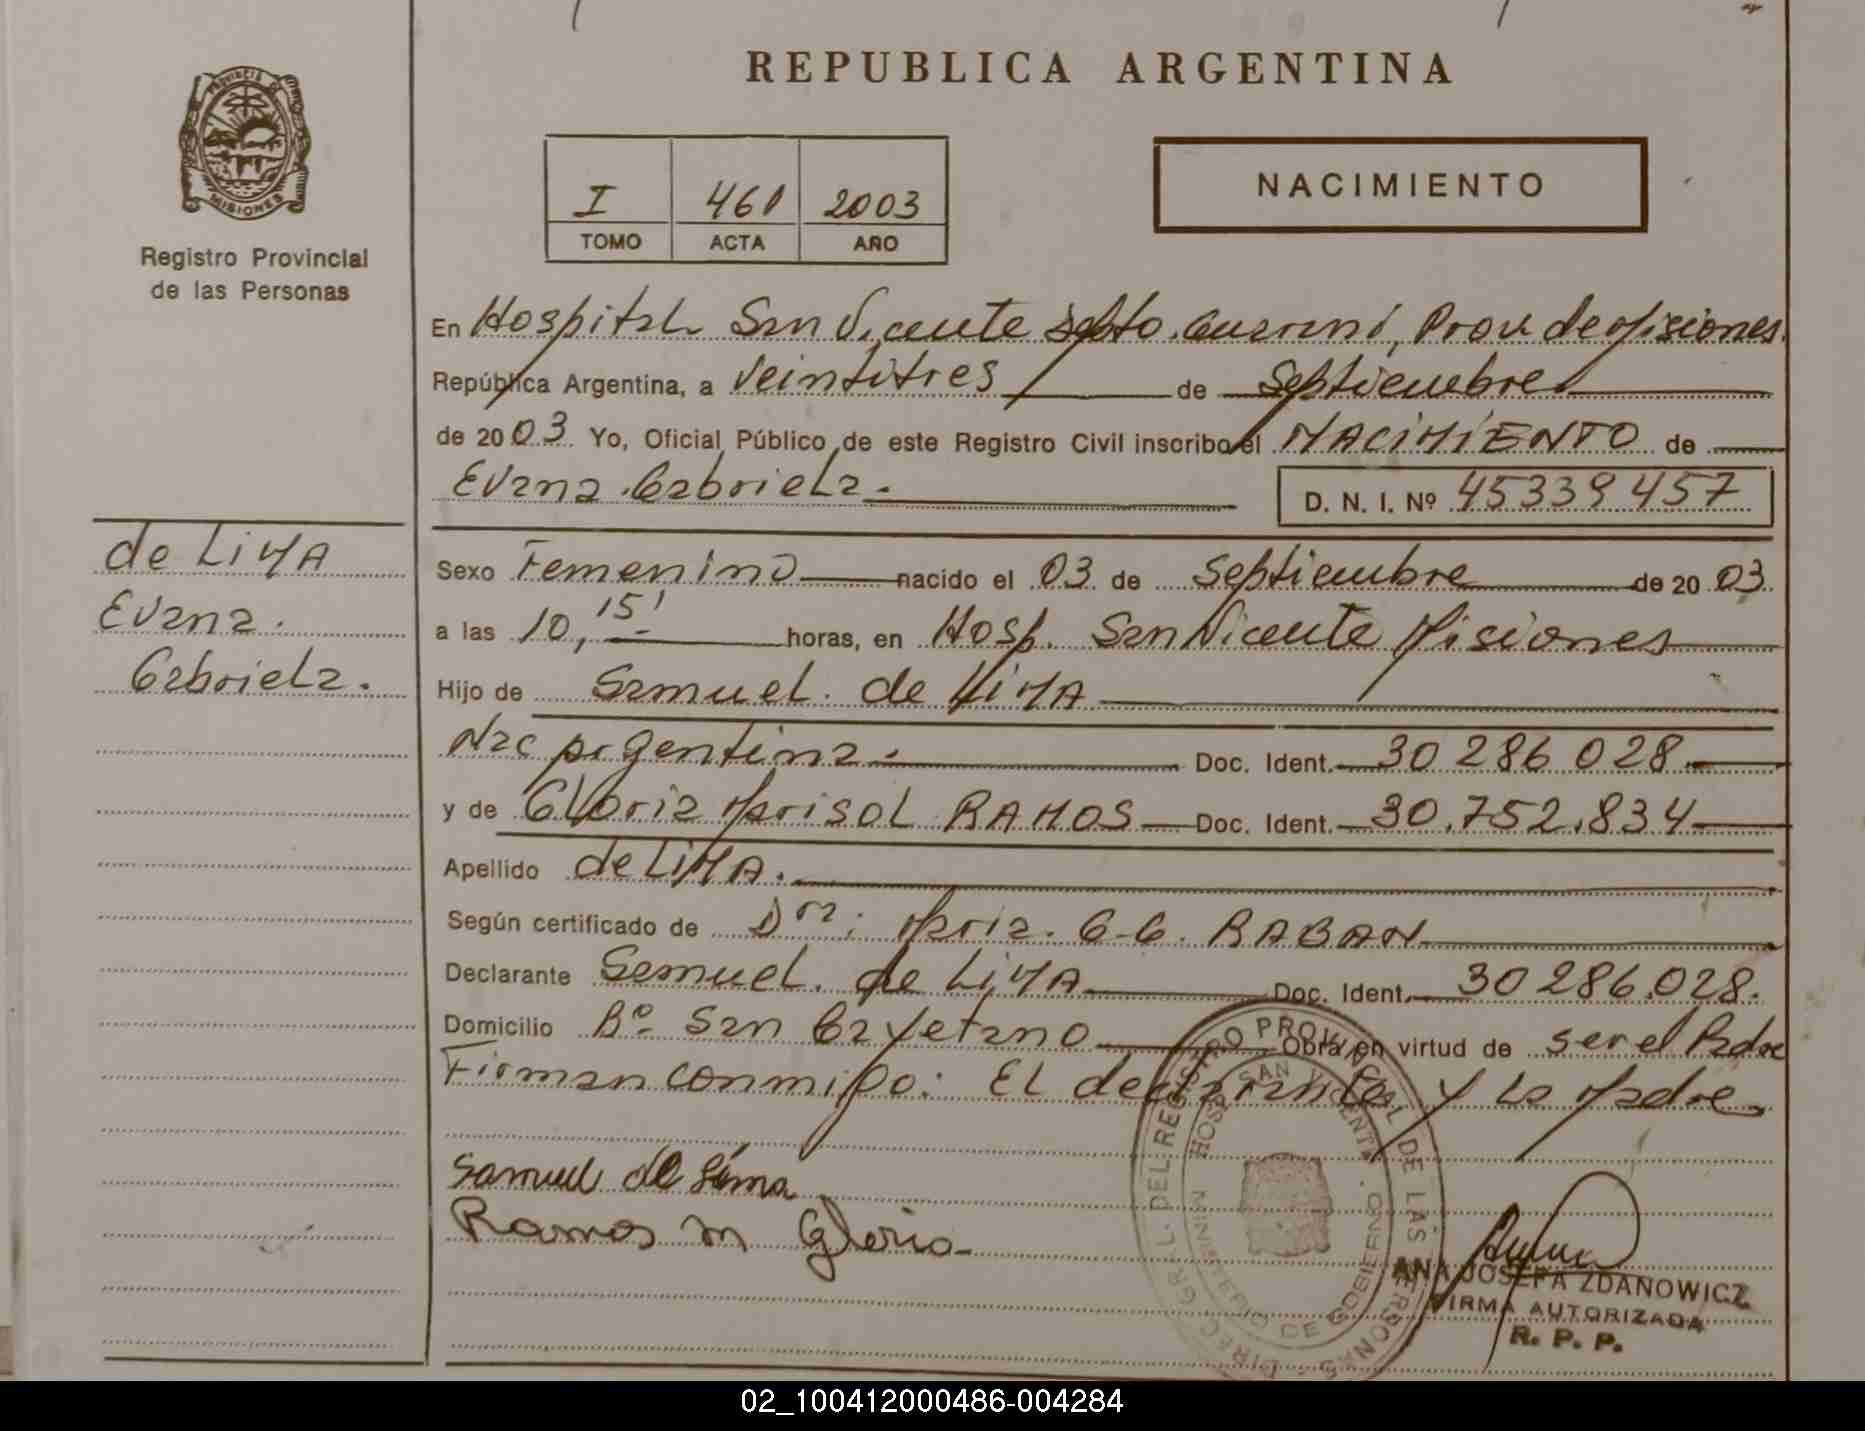 REPUBLICA ARGENTINA
PROVINCIA DE
MISIONES
Registro Provincial
de las Personas
I 461 2003
TOMO ACTA AÑO
NACIMIENTO
En Hospital San Vicente Depto. Guarani, Prov de Misiones.
República Argentina, a veintitres de Septiembre
de 2003 Yo, Oficial Público de este Registro Civil inscribo el NACIMIENTO de
Evana Gabriela.-
D. N. I. Nº 45339457
de LiMA
Evana.
Gabriela.
Sexo Femenino nacido el 03 de Septiembre de 2003
a las 10,15' horas, en Hosp. San Vicente Misiones
Hijo de Samuel. de LiMA
Nac Argentina.- Doc. Ident. 30 286 028.
y de Gloria Marisol RAMOS Doc. Ident. 30.752.834
Apellido de LiMA.
Según certificado de Dra: Maria. G. G. RABAN
Declarante Samuel. de LiMA Doc. Ident. 30 286.028.
Domicilio Bº San Cayetano Obra en virtud de ser el Padre
Firman conmigo: El declarante y La Madre
Samuel de Lima
Ramos m Gloria
DIREC. GRAL. DEL REGISTRO PROVINCIAL DE LAS PERSONAS
HOSP. SAN VICENTE
MINISTERIO DE GOBIERNO
ANA JOSEFA ZDANOWICZ
FIRMA AUTORIZADA
R. P. P.
02_100412000486-004284